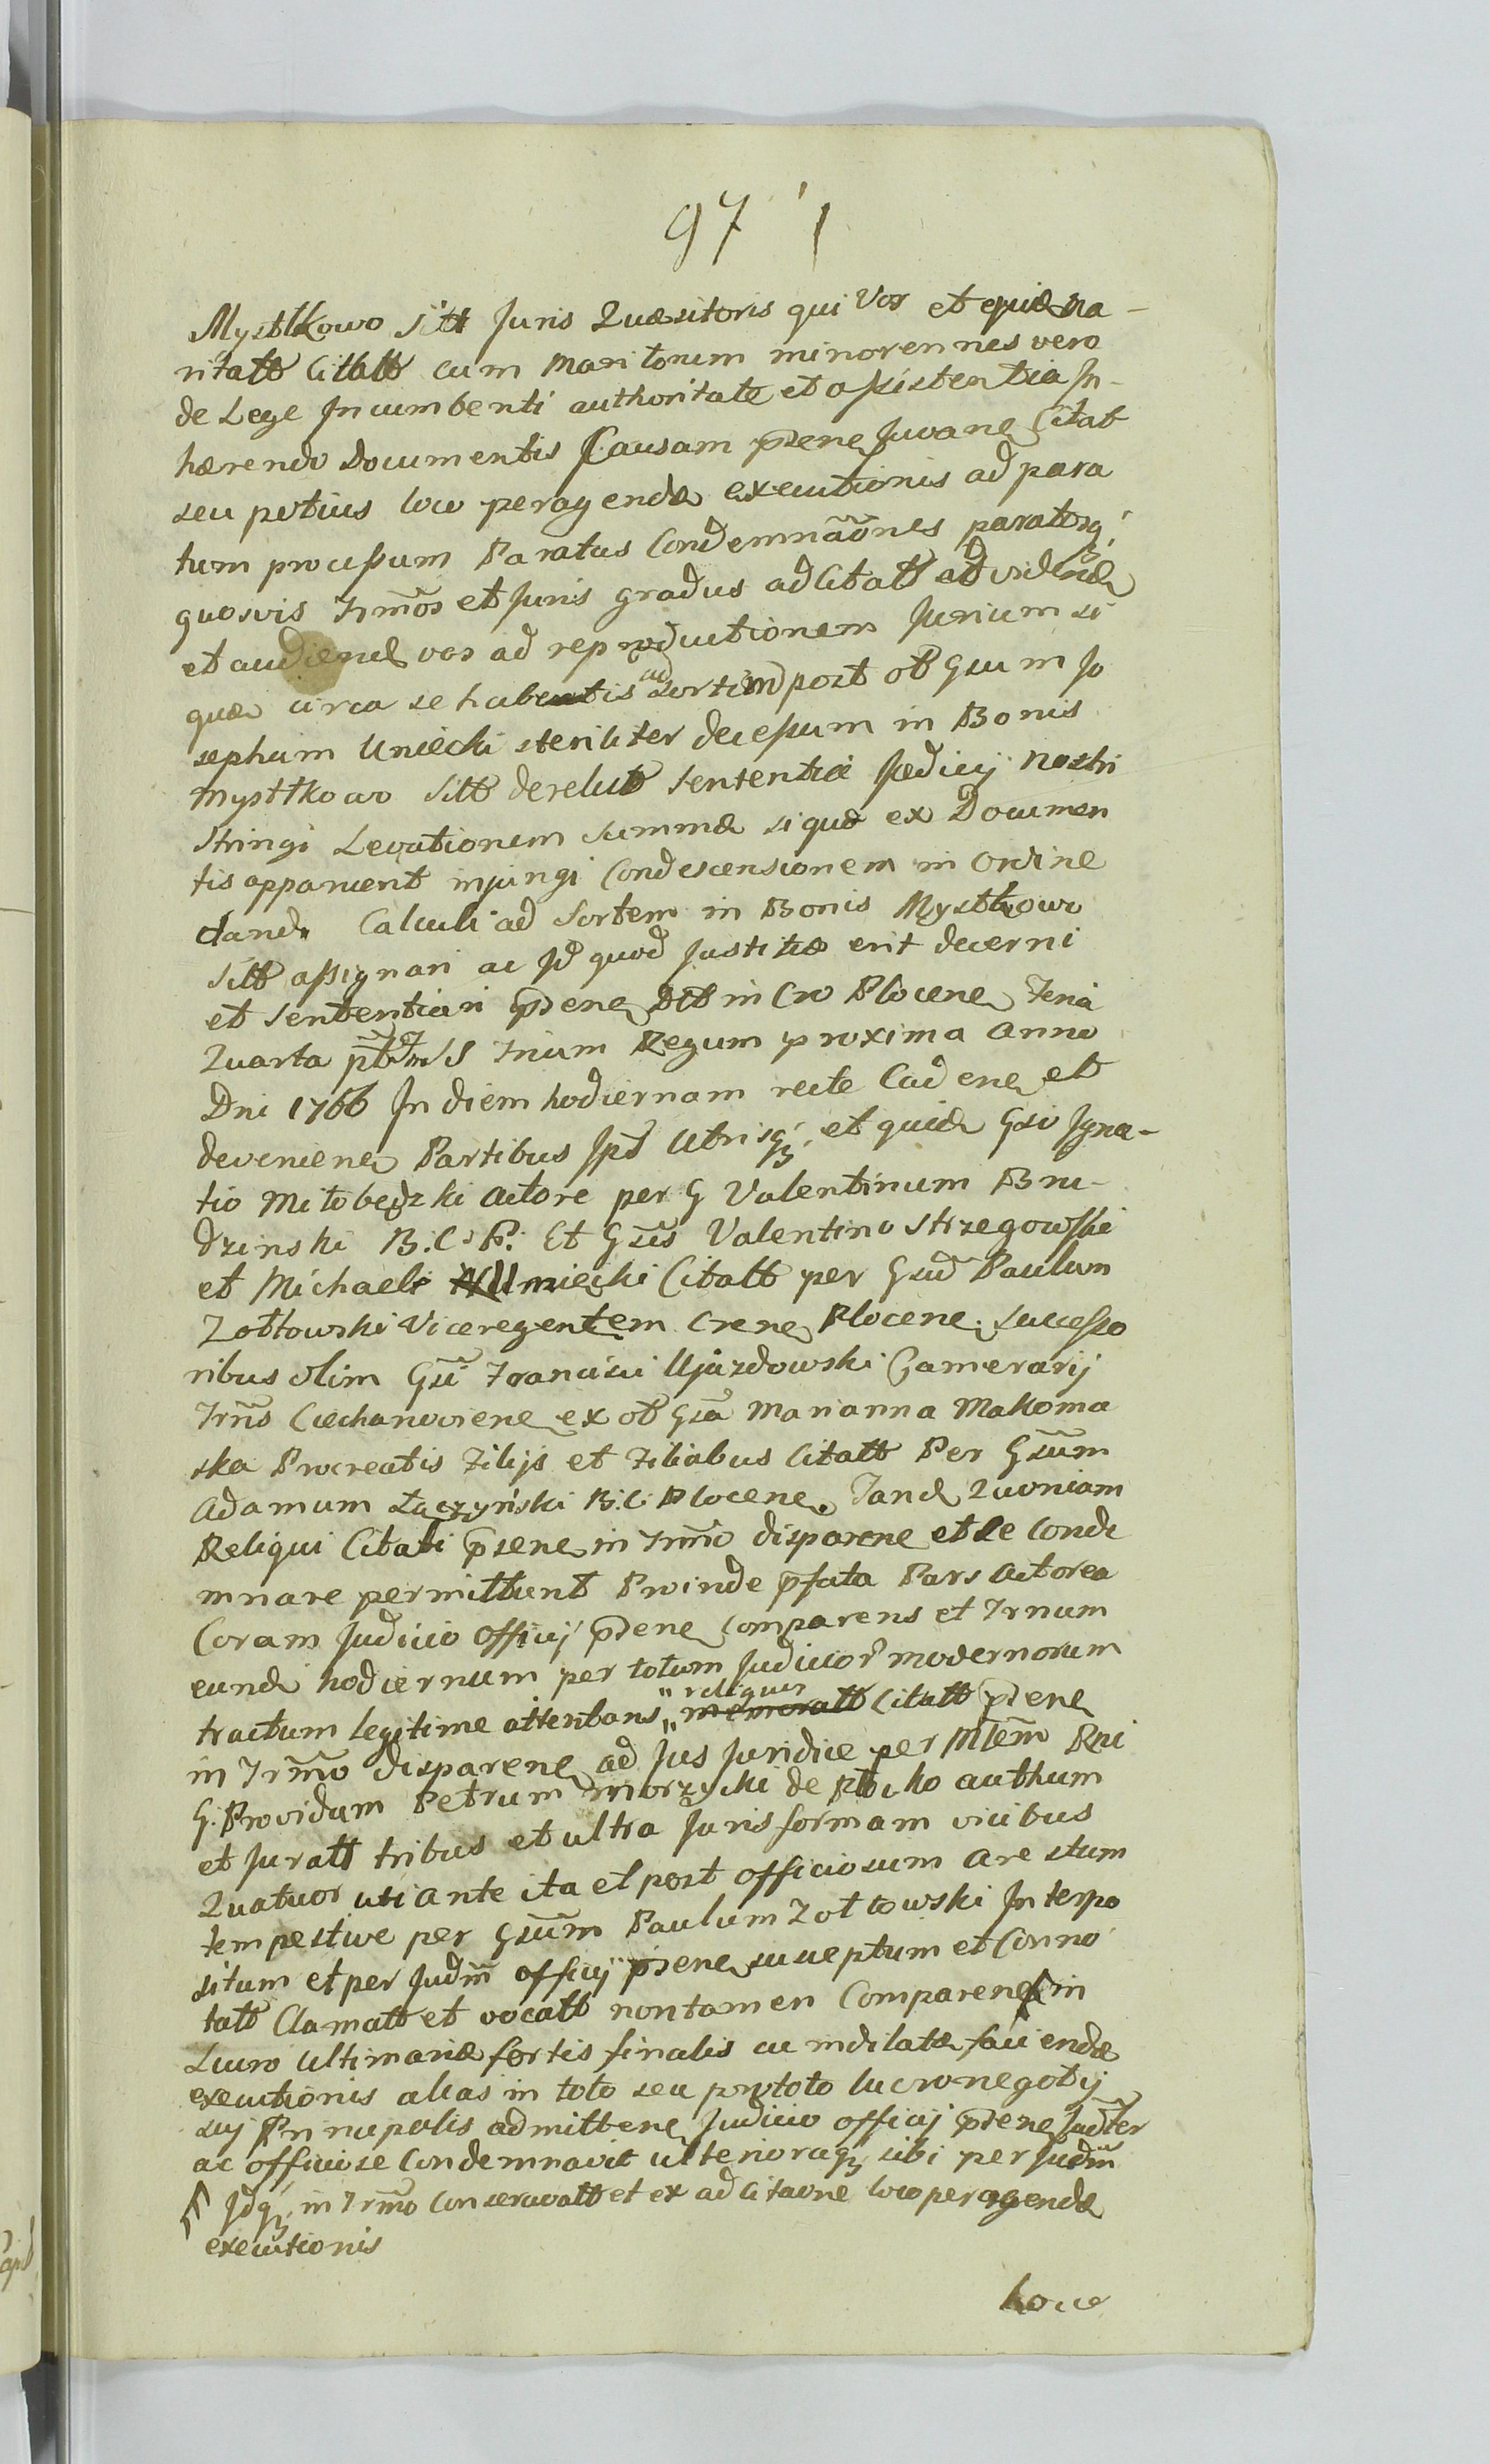 97
Mystkowo Sitt Juris Quæsitoris qui Vos et quidem ma-
ritatt Citatt cum Maritorum minorennes vero
de Lege Incumbenti authoritate et assistentia In-
hærendo Documentis Causam psene Juvane Citat
seu potius loco peragendæ executionis ad para
tum processum Paratas Condemnãones paratosq;
quosvis Trmõs et Juris gradus adCitatt ad videnđ
et audienđ vos ad reproductionem Jurium si
quæ circa se habentis ad Sortem post ob Gsum Jo
sephum Uniecki steriliter decessum in Bonis
Mysttkowo Sitt derelict Sententia Judicij Nostri
stringi Levationem Summæ si quæ ex Documen
tis apparuent injungi Condescensionem in Ordine
dand. Calculi ad Sortem in Bonis Mysttkowo
Sitt assignari ac Id quod Justitiæ erit decerni
et Sententiari psene Dtt in Cro Plocene Feria
Quarta ptt Fm S Trium Regum proxima Anno
Dni 1766 In diem hodiernam recte Cadene et
deveniene Partibus Ipđ Utrisq; et quidem Gso Igna-
tio Miłobędzki Actore per G Valentinum Bru-
dzinski B. C. P. Et Gsis Valentino Strzegowski
et Michaele Uniecki Citatt per Gsum Paulum
Zołtowski Viceregentem Crene Plocene. Successo
ribus olim Gsi Francisci Ujazdowski Camerarij
Trris Ciechanoviene ex ob Gsa Marianna Makoma
ska Procreatis Filijs et Filiabus Citatt Per Gsum
Adamum Łączyński B. C. Plocene. Tand Quoniam
Religui Citati psene in Trmo disparene et se Conde
mnare permittunt Proinde pfata Pars Actorea
Coram Judicio Officij psene Comparens et Trnum
eund hodiernum per totum Judicior modernorum
tractum legitime attentans " reliquos memoratt Citatt psene
in Trmo disparene ad Jus Juridice per Mtem Rni
G. Providum Petrum Morzycki de Płocko authum
et Juratt tribus et ultra Juris formam vicibus
Quatuor uti ante ita et post officiosum Arestum
tempestive per Gsum Paulum Zołtowski Interpo
situm et per Judm officij psene susceptum et Conno
tatt Clamatt et vocatt non tamen Comparene in
Lucro Ultimariæ fortis finalis ac indilatæ faciendæ
executionis alias in toto seu pro toto lucro negotij
sui Principalis admittene Judicio officij psene Judter
ac officiose Condemnavit ulterioraq; sibi per Judm
Idq; in Trmo Conservatt et ex adCitaone loco peragendæ
executionis
hoce